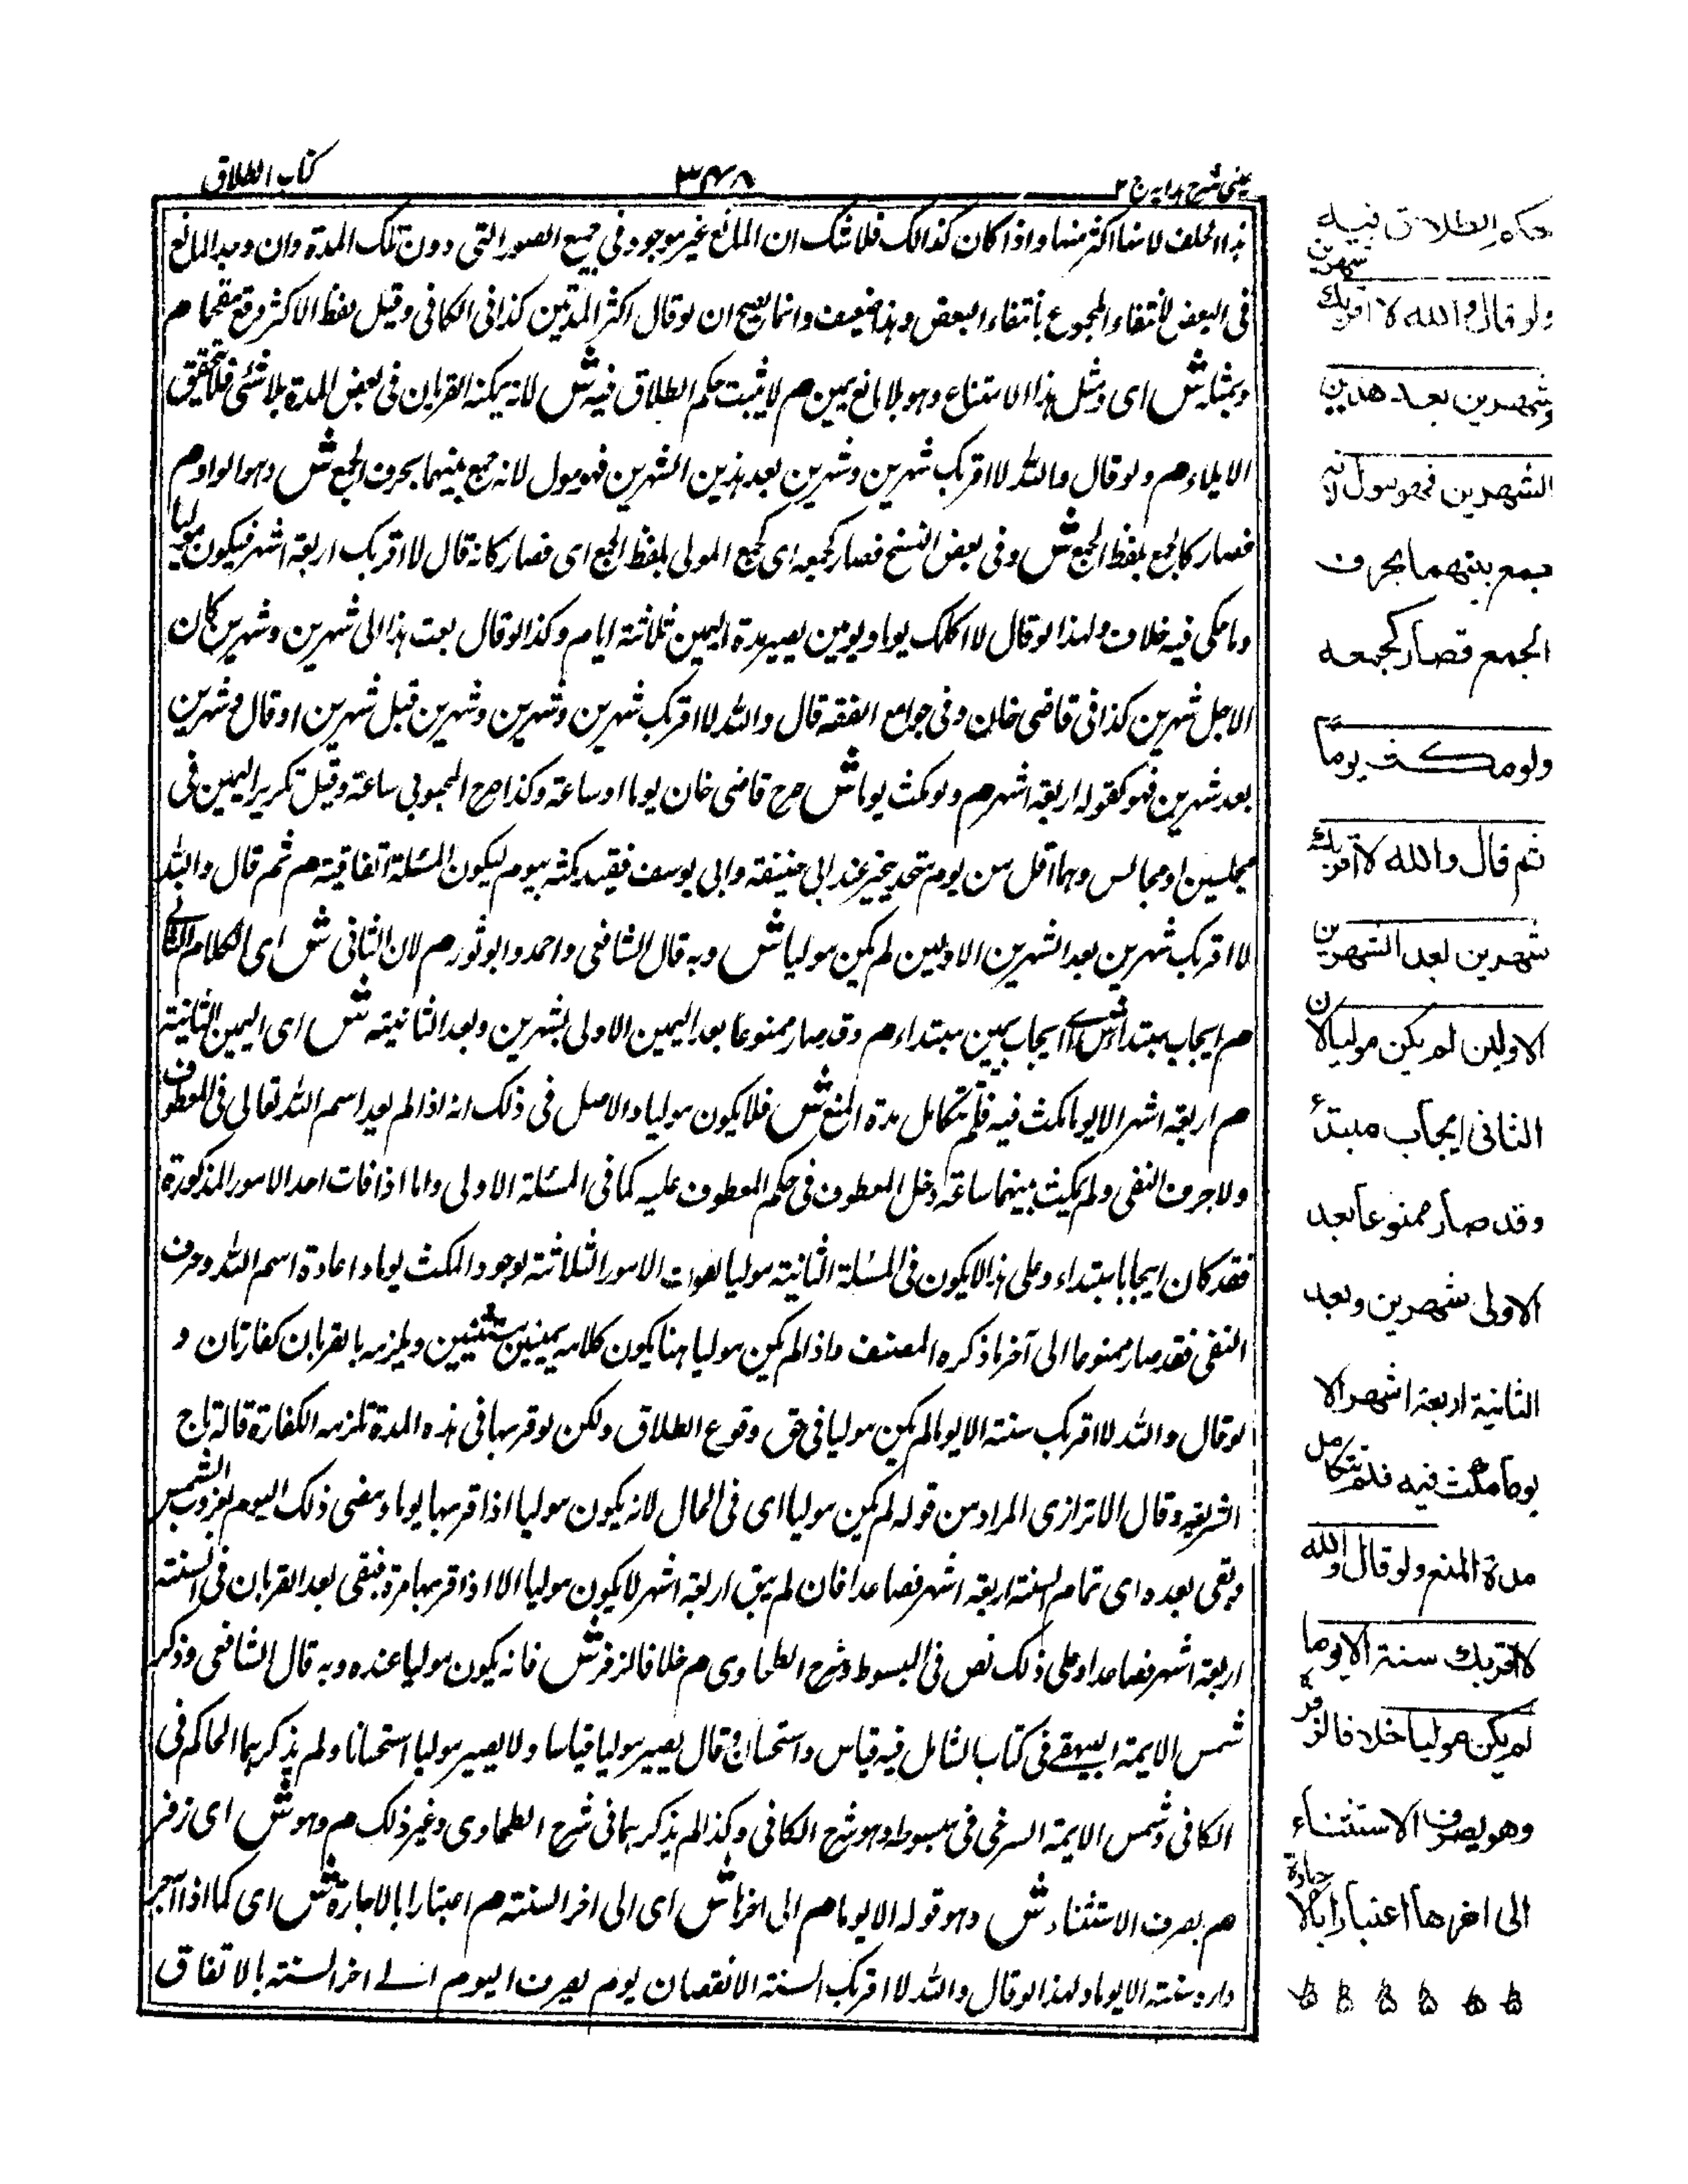 عینی شرح ہدایہ ج ۲
۳۴۸
كتاب الطلاق
ہذا الحلف لانہا اكثر منہا واذا كان كذالك فلا شك ان المانع غير موجود فی جميع الصور التی دون تلك المدة وان وجد المانع
فی البعض لانتفاء المجموع بانتفاء البعض وہذا ضعيف وانما يصح ان لو قال اكثر المدتين كذا فی الكافی وقيل لفظ الاكثر وقع مقحما م
وبمثلہ ش ای وبمثل ہذا الامتناع وہو بلا مانع يمين م لا يثبت حكم الطلاق فيہ ش لانہ يمكنہ القربان فی بعض المدة بلا شئی فلا يتحقق
الايلاء م ولو قال واللہ لا اقربك شہرين وشہرين بعد ہذين الشہرين فہو مول لانہ جمع بينہما بحرف الجمع ش وہو الواو م
فصار كالجمع بلفظ الجمع ش وفی بعض النسخ فصار كجمعہ ای كجمع المولی بلفظ الجمع ای فصار كانہ قال لا اقربك اربعة اشہر فيكون موليا
وما حكی فيہ خلاف ولہذا لو قال لا اكلمك يوما ويومين يصير مدة اليمين ثلاثة ايام وكذا لو قال بعت ہذا الی شہرين وشہرين كان
الاجل شہرين كذا فی قاضی خان وفی جوامع الفقہ قال واللہ لا اقربك شہرين وشہرين وشہرين قبل شہرين او قال وشہرين
بعد شہرين فہو كقولہ اربعة اشہر م ولو مكث يوما ش صرح قاضی خان يوما او ساعة وكذا صرح المحبوبی ساعة وقيل تكرير اليمين فی
مجلسين او مجالس وہما اقل من يوم متحد يخير عند ابی حنيفة وابی يوسف فقيد مكثہ بيوم ليكون المسئلة اتفاقية م ثم قال واللہ
لا اقربك شہرين بعد الشہرين الاوليين لم يكن موليا ش وبہ قال الشافعی واحمد وابو ثور م لان الثانی ش ای الكلام الثانی
م ايجاب مبتدا ش ای ايجاب يمين مبتداء م وقد صار ممنوعا بعد اليمين الاولی بشہرين وبعد الثانية ش ای اليمين الثانية
م اربعة اشہر الا يوما مكث فيہ فلم تتكامل مدة المنع ش فلا يكون موليا والاصل فی ذلك انہ اذا لم يعد اسم اللہ تعالی فی المعطوف
ولا حرف النفی ولم يمكث بينہما ساعة دخل المعطوف فی حكم المعطوف عليہ كما فی المسئلة الاولی واما اذا فات احد الامور المذكورة
فقد كان ايجابا مبتداء وعلی ہذا لا يكون فی المسئلة الثانية موليا لفوات الامور الثلاثة لوجود المكث يوما واعادة اسم اللہ وحرف
النفی فقد صار ممنوعا الی آخر ما ذكره المصنف واذا لم يكن موليا ہنا يكون كلامہ يمينين مستثنيين ويلزمہ بالقربان كفارتان و
لو قال واللہ لا اقربك سنة الا يوما لم يكن موليا فی حق وقوع الطلاق ولكن لو قربہا فی ہذه المدة تلزمہ الكفارة قالہ تاج
الشريعہ وقال الاترازی المراد من قولہ لم يكن موليا ای فی الحال لانہ يكون موليا اذا قربہا يوما ومضی ذلك اليوم بغروب الشمس
وبقی بعده ای تمام السنة اربعة اشہر فصاعدا فان لم يبق اربعة اشہر لا يكون موليا الا اذا قربہا مرة فبقی بعد القربان فی السنة
اربعة اشہر فصاعدا وعلی ذلك نص فی المبسوط وشرح الطحاوی م خلافا لزفر ش فانہ يكون موليا عنده وبہ قال الشافعی وذكر
شمس الايمة البيہقی فی كتاب الشامل فيہ قياس واستحسان وقال يصير موليا قياسا ولا يصير موليا استحسانا ولم يذكرہما الحاكم فی
الكافی وشمس الايمة السرخسی فی مبسوطہ وہو شرح الكافی وكذا لم يذكرہما فی شرح الطحاوی وغير ذلك م وہو ش ای زفر
م يصرف الاستثناء ش وہو قولہ الا يوما م الی اخرہا ش ای الی اخر السنة م اعتبارا بالاجارة ش ای كما اذا آجر
داره سنة الا يوما ولہذا لو قال واللہ لا اقربك السنة الا نقصان يوم يصرف اليوم الی اخر السنة بالاتفاق
حكم الطلاق فيه
شهرين
ولو قال والله لا اقربك
وشهرين بعد هذين
الشهرين فهو مول لانه
جمع بينهما بحرف
الجمع فصار كجمعه
ولو مكث يوما
ثم قال والله لا اقربك
شهرين بعد الشهرين
الاولين لم يكن موليا لان
الثانى ايجاب مبتدء
وقد صار ممنوعا بعد
الاولى شهرين وبعد
الثانية اربعة اشهر الا
يوما مكث فيه فلم تتكامل
مدة المنع ولو قال والله
لا اقربك سنة الا يوما
لم يكن موليا خلافا لزفر
وهو يصرف الاستثناء
الى اخرها اعتبارا بالاجارة